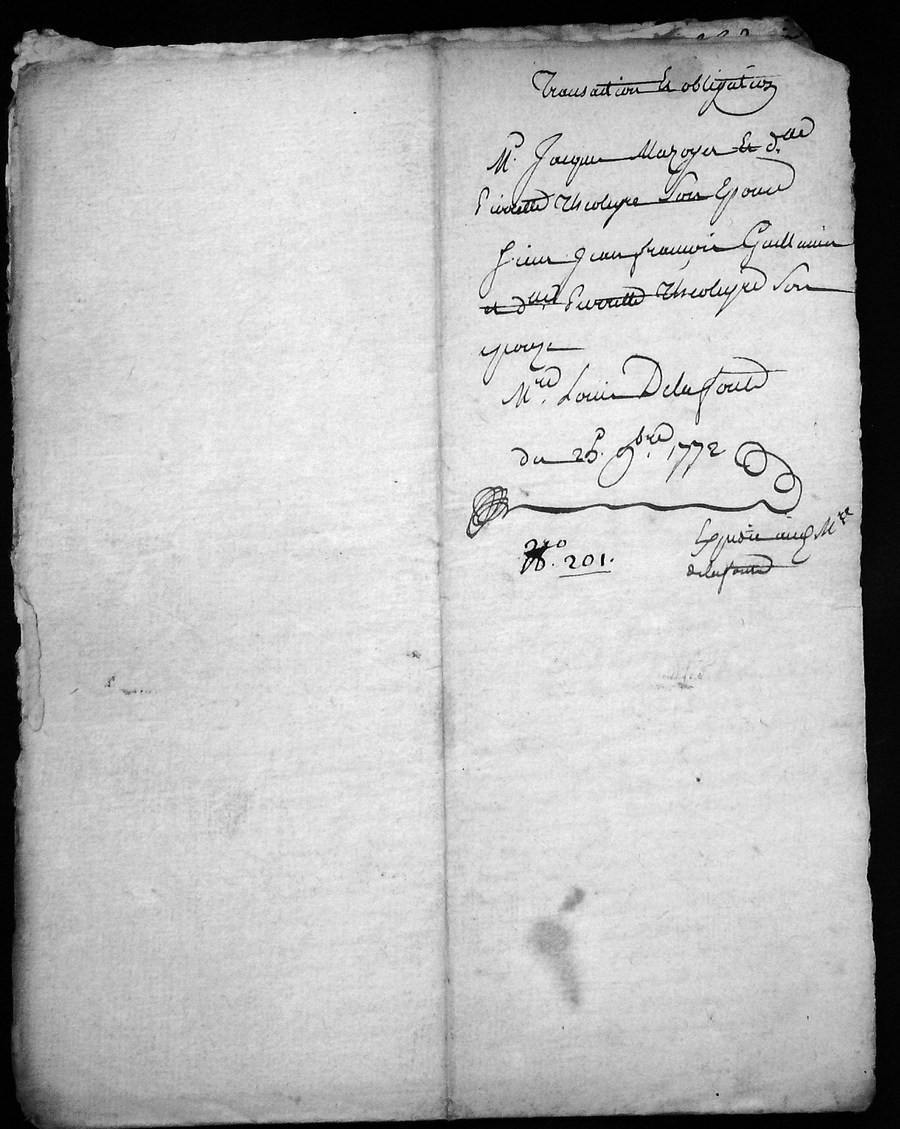 Transaction Et obligation
Mr. Jacque Mazoyer Et dlle
Pierrette Son Epouse
Sieur Jean françois Guillemin
et dlle Pierrette Son
epouze
Mre. Louis Delafoule
du 25 9bre 1772
No. 201.
Expedié Mre
delafoule